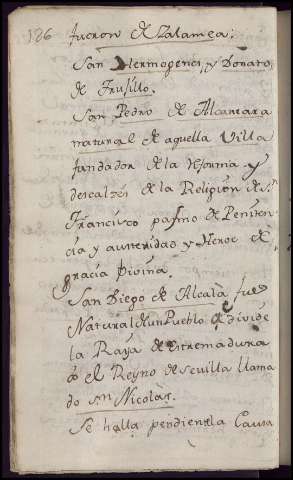 186 fueron de Zalamea.
San Hermogenes, y Donato
de Trujillo.
San Pedro de Alcantara
natural de aquella Villa
fundador de la reforma y
descalzés de la Religion de Sn
Francisco pasmo de Peniten
cia y austeridad y Heroe de
gracia Divina.
San Diego de Alcalà fue
Natural de un Pueblo q divide
la Raya de Estremadura
 el Reyno de Sevilla llama
do sn Nicolàs.
Se halla pendiente la Causa